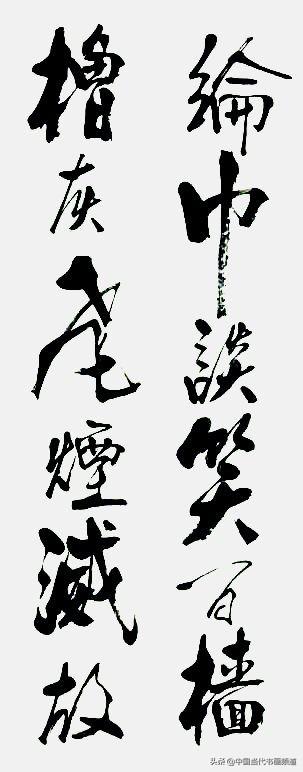 綸巾談笑間檣
櫓灰飛煙滅故
头条 @中国当代书画频道